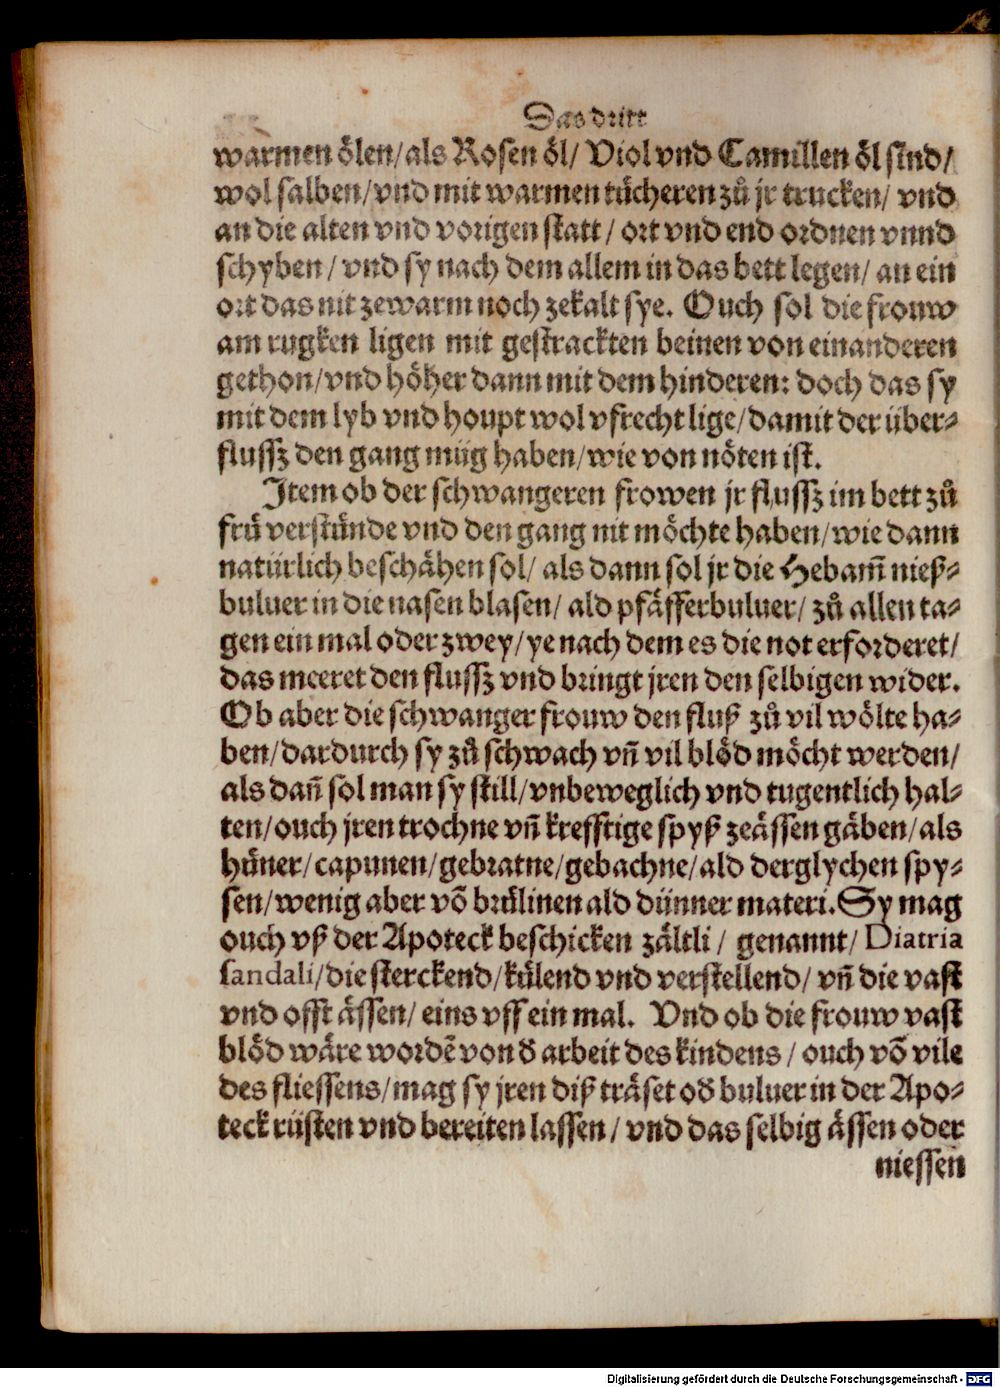 Das dritt
warmen ölen/als Rosen öl/ Viol vnd Camillen öl sind/
wol salben/vnd mit warmen tücheren zů jr trucken/ vnd
an die alten vnd vorigen statt/ ort vnd end ordnen vnnd
schyben/ vnd sy nach dem allem in das bett legen/ an ein
ort das nit zewarm noch zekalt sye. Ouch sol die frouw
am rugken ligen mit gestrackten beinen von einanderen
gethon/vnd höher dann mit dem hinderen: doch das sy
mit dem lyb vnd houpt wol vfrecht lige/damit der über-
flussz den gang müg haben/wie von nöten ist.
Item ob der schwangeren frowen jr flussz im bett zů
frü verstünde vnd den gang nit möchte haben/wie dann
natürlich beschähen sol/ als dann sol jr die Hebam̄ nieß-
buluer in die nasen blasen/ ald pfäfferbuluer/ zů allen ta-
gen ein mal oder zwey/ye nach dem es die not erforderet/
das meeret den flussz vnd bringt jren den selbigen wider.
Ob aber die schwanger frouw den fluß zů vil wölte ha-
ben/dardurch sy zů schwach vn̄ vil blöd möcht werden/
als dan̄ sol man sy still/vnbeweglich vnd tugentlich hal-
ten/ouch jren trochne vn̄ krefftige spyß zeässen gäben/als
hüner/capunen/gebratne/gebachne/ald derglychen spy-
sen/wenig aber vō brülinen ald dünner materi. Sy mag
ouch vß der Apoteck beschicken zältli/ genannt/ Diatria
sandali/die sterckend/külend vnd verstellend/ vn̄ die vast
vnd offt ässen/ eins vff ein mal. Vnd ob die frouw vast
blöd wäre wordē von d̕ arbeit des kindens/ ouch vō vile
des fliessens/mag sy jren diß träset od̕ buluer in der Apo-
teck rüsten vnd bereiten lassen/ vnd das selbig ässen oder
niessen
Digitalisierung gefördert durch die Deutsche Forschungsgemeinschaft - DFG